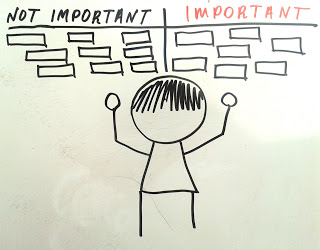 NOT IMPORTANT
IMPORTANT